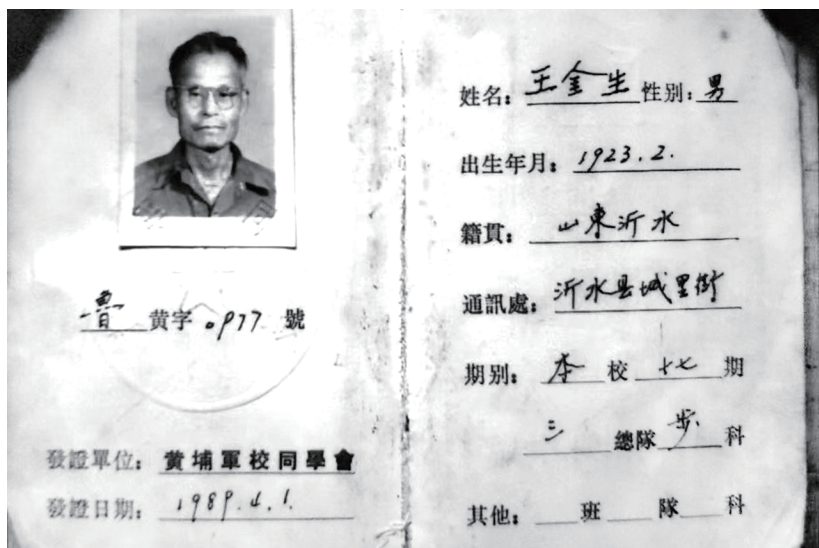 魯黄字0977號
發證單位：黄埔軍校同學會
發證日期：1989.4.1.
姓名：王金生性别：男
出生年月：1923.2.
籍貫：山東沂水
通訊處：沂水县城里街
期别：本校十七期
三總隊步科
其他：班隊科